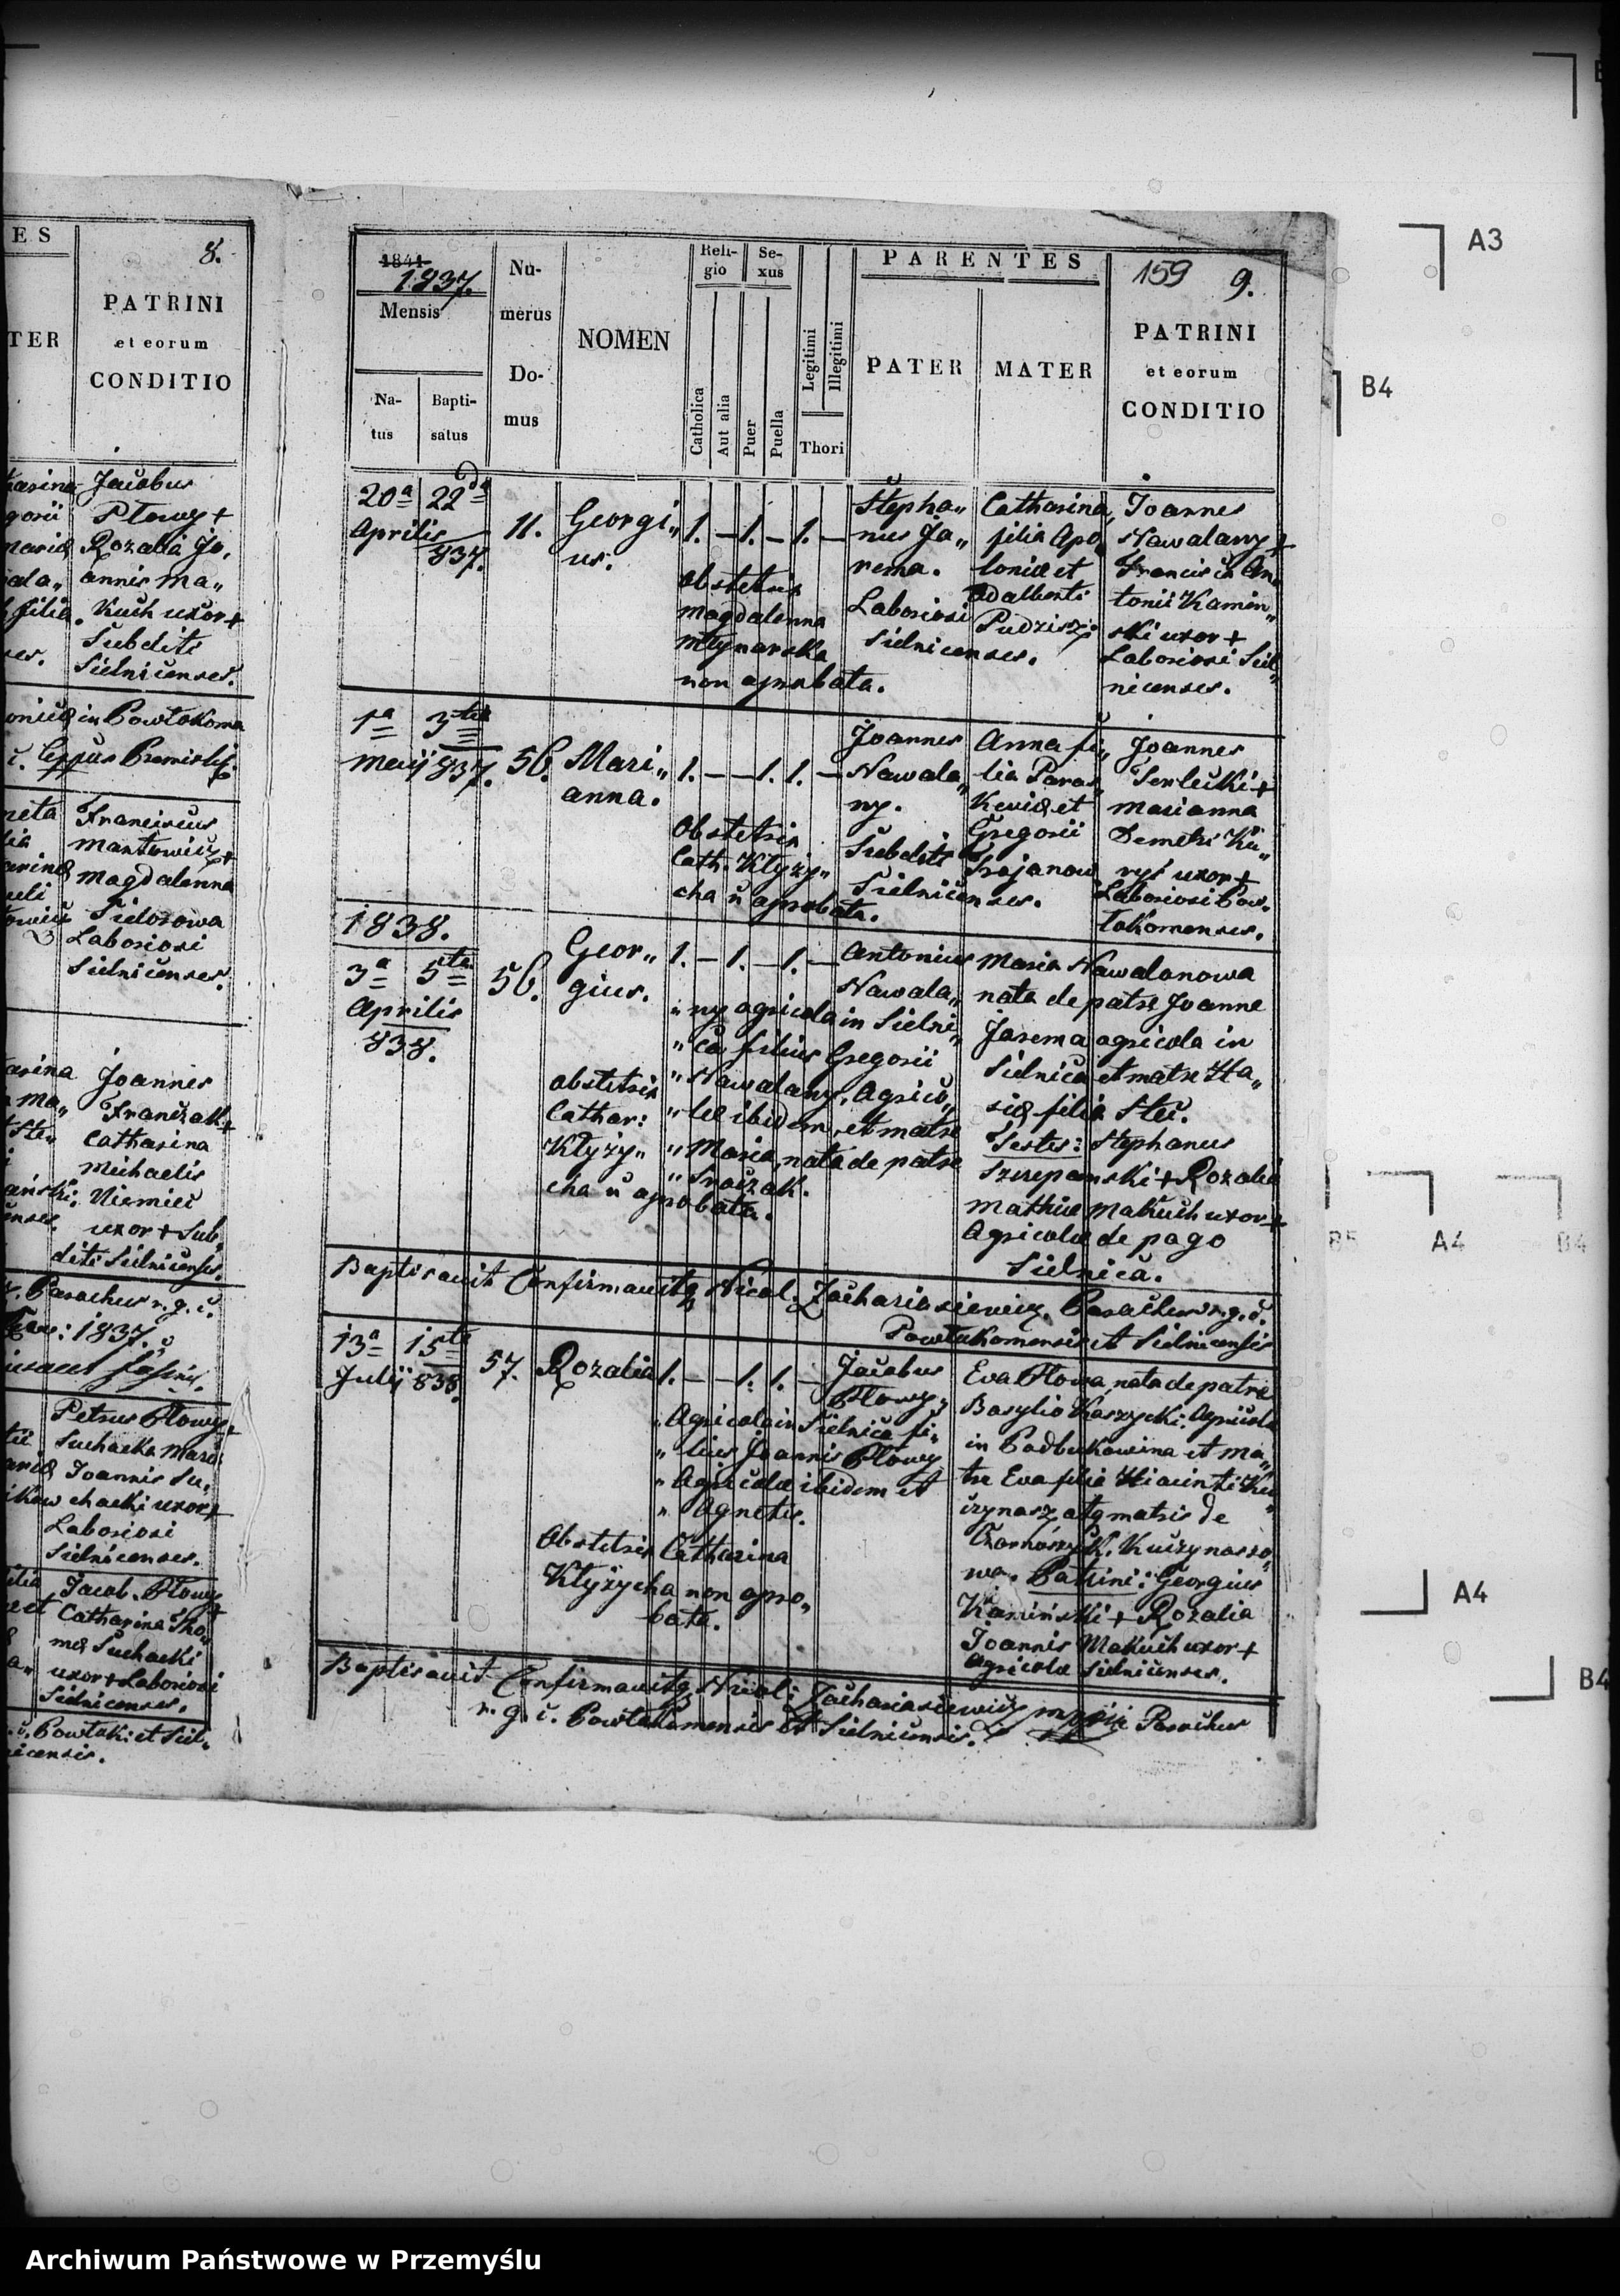 ES
8.
TER
PATRINI
et eorum
CONDITIO
Jacobus
Płowy +
Rozalia Jo,
annis Ma„
kuch uxor +
Subditi
Sielnicenses.
in Powłokoma
Franciscus
Mantowicz +
Magdalenna
Sidorowa
Laboriosi
Sielnicenses.
Joannes
Franczak +
Catharina
Michaelis
Niemiec
uxor + Sub„
diti Sielnicenses.
Parochus r. g. c.
1837.
Petrus Płowy +
Suchacka Mari
Joannis Su„
chacki uxor +
Laboriosi
Sielnicenses.
Jacob. Płowy +
Catharina Tho„
mæ Suchacki
uxor + Laboriosi
Sielnicenses.
Powłok: et Siel„
nicensis.
1841
1837.
Mensis
Na-
tus
Bapti-
satus
Nu-
merus
Do-
mus
NOMEN
Reli-
gio
Catholica
Aut alia
Se-
xus
Puer
Puella
Legitimi
Illegitimi
Thori
PARENTES
PATER
MATER
159 9.
PATRINI
et eorum
CONDITIO
20a 22da
Aprilis
837.
11.
Georgi„
us.
1. — 1. — 1. —
Obstetrix
Magdalenna
Młynarska
non aprobata.
Stepha„
nus Ja„
rema.
Laboriosi
Sielnicenses.
Catharina,
filia Apo„
loniæ et
Adalberti
Pudzisz.
Joannes
Nawalany +
Francisca An„
tonii Kamin„
ski uxor +
Laboriosi Siel„
nicenses.
1a 3tia
Maij 837.
56.
Mari„
anna.
1. — — 1. 1. —
Obstetrix
Cath. Kłyży„
cha n̄ aprobata.
Joannes
Nawala„
ny.
Subditi
Sielnicenses.
Anna fi„
lia Paras„
keviæ et
Gregorii
Trojanow
Joannes
Serlecki +
Marianna
Demetri Ku„
ryś uxor +
Laboriosi Pow„
łokomenses.
1838.
3a 5ta
Aprilis
838.
56.
Geor„
gius.
1. — 1. — 1. —
Obstetrix
Cathar:
Kłyży„
cha n̄ aprobata.
Antonius
Nawala„
„ny agricola in Sielni„
„ca filius Gregorii
„Nawalany, Agrico„
„læ ibidem, et matre
„Maria, nata de patre
„Troczak.
Maria Nawalanowa
nata de patre Joanne
Jarema agricola in
Sielnica et matre Na„
siæ filia Stec.
Testes: Stephanus
Szczepanski + Rozalia
Mathiæ Makuch uxor +
Agricolæ de pago
Sielnica.
Baptisavit Confirmavitq Nicol. Zachariasiewicz, Parochus r. g. c.
Powłokomensis et Sielnicensis
13a 15ta
Julij 838.
57.
Rozalia
1. — — 1. 1. —
Jacobus
Płowy,
„Agricola in Sielnica fi„
„lius Joannis Płowy
„Agricolæ ibidem et
„Agnetis.
Obstetrix Catharina
Kłyżycha non apro„
bata.
Eva Płowa, nata de patre
Basylio Kaszycki: Agricola
in Padbukowina et Ma„
tre Eva filia Hiacinti Ku„
czynasz atq matris de
Kuczynaszo„
wa. Patrini: Georgius
Kamiński + Rozalia
Joannis Makuch uxor +
Agricolæ Sielnicenses.
Baptisavit Confirmavitq Nicol: Zachariasiewicz Parochus
r. g. c. Powłokomensis et Sielnicensis.
A3
B4
B5 A4 B4
A4
B4
Archiwum Państwowe w Przemyślu